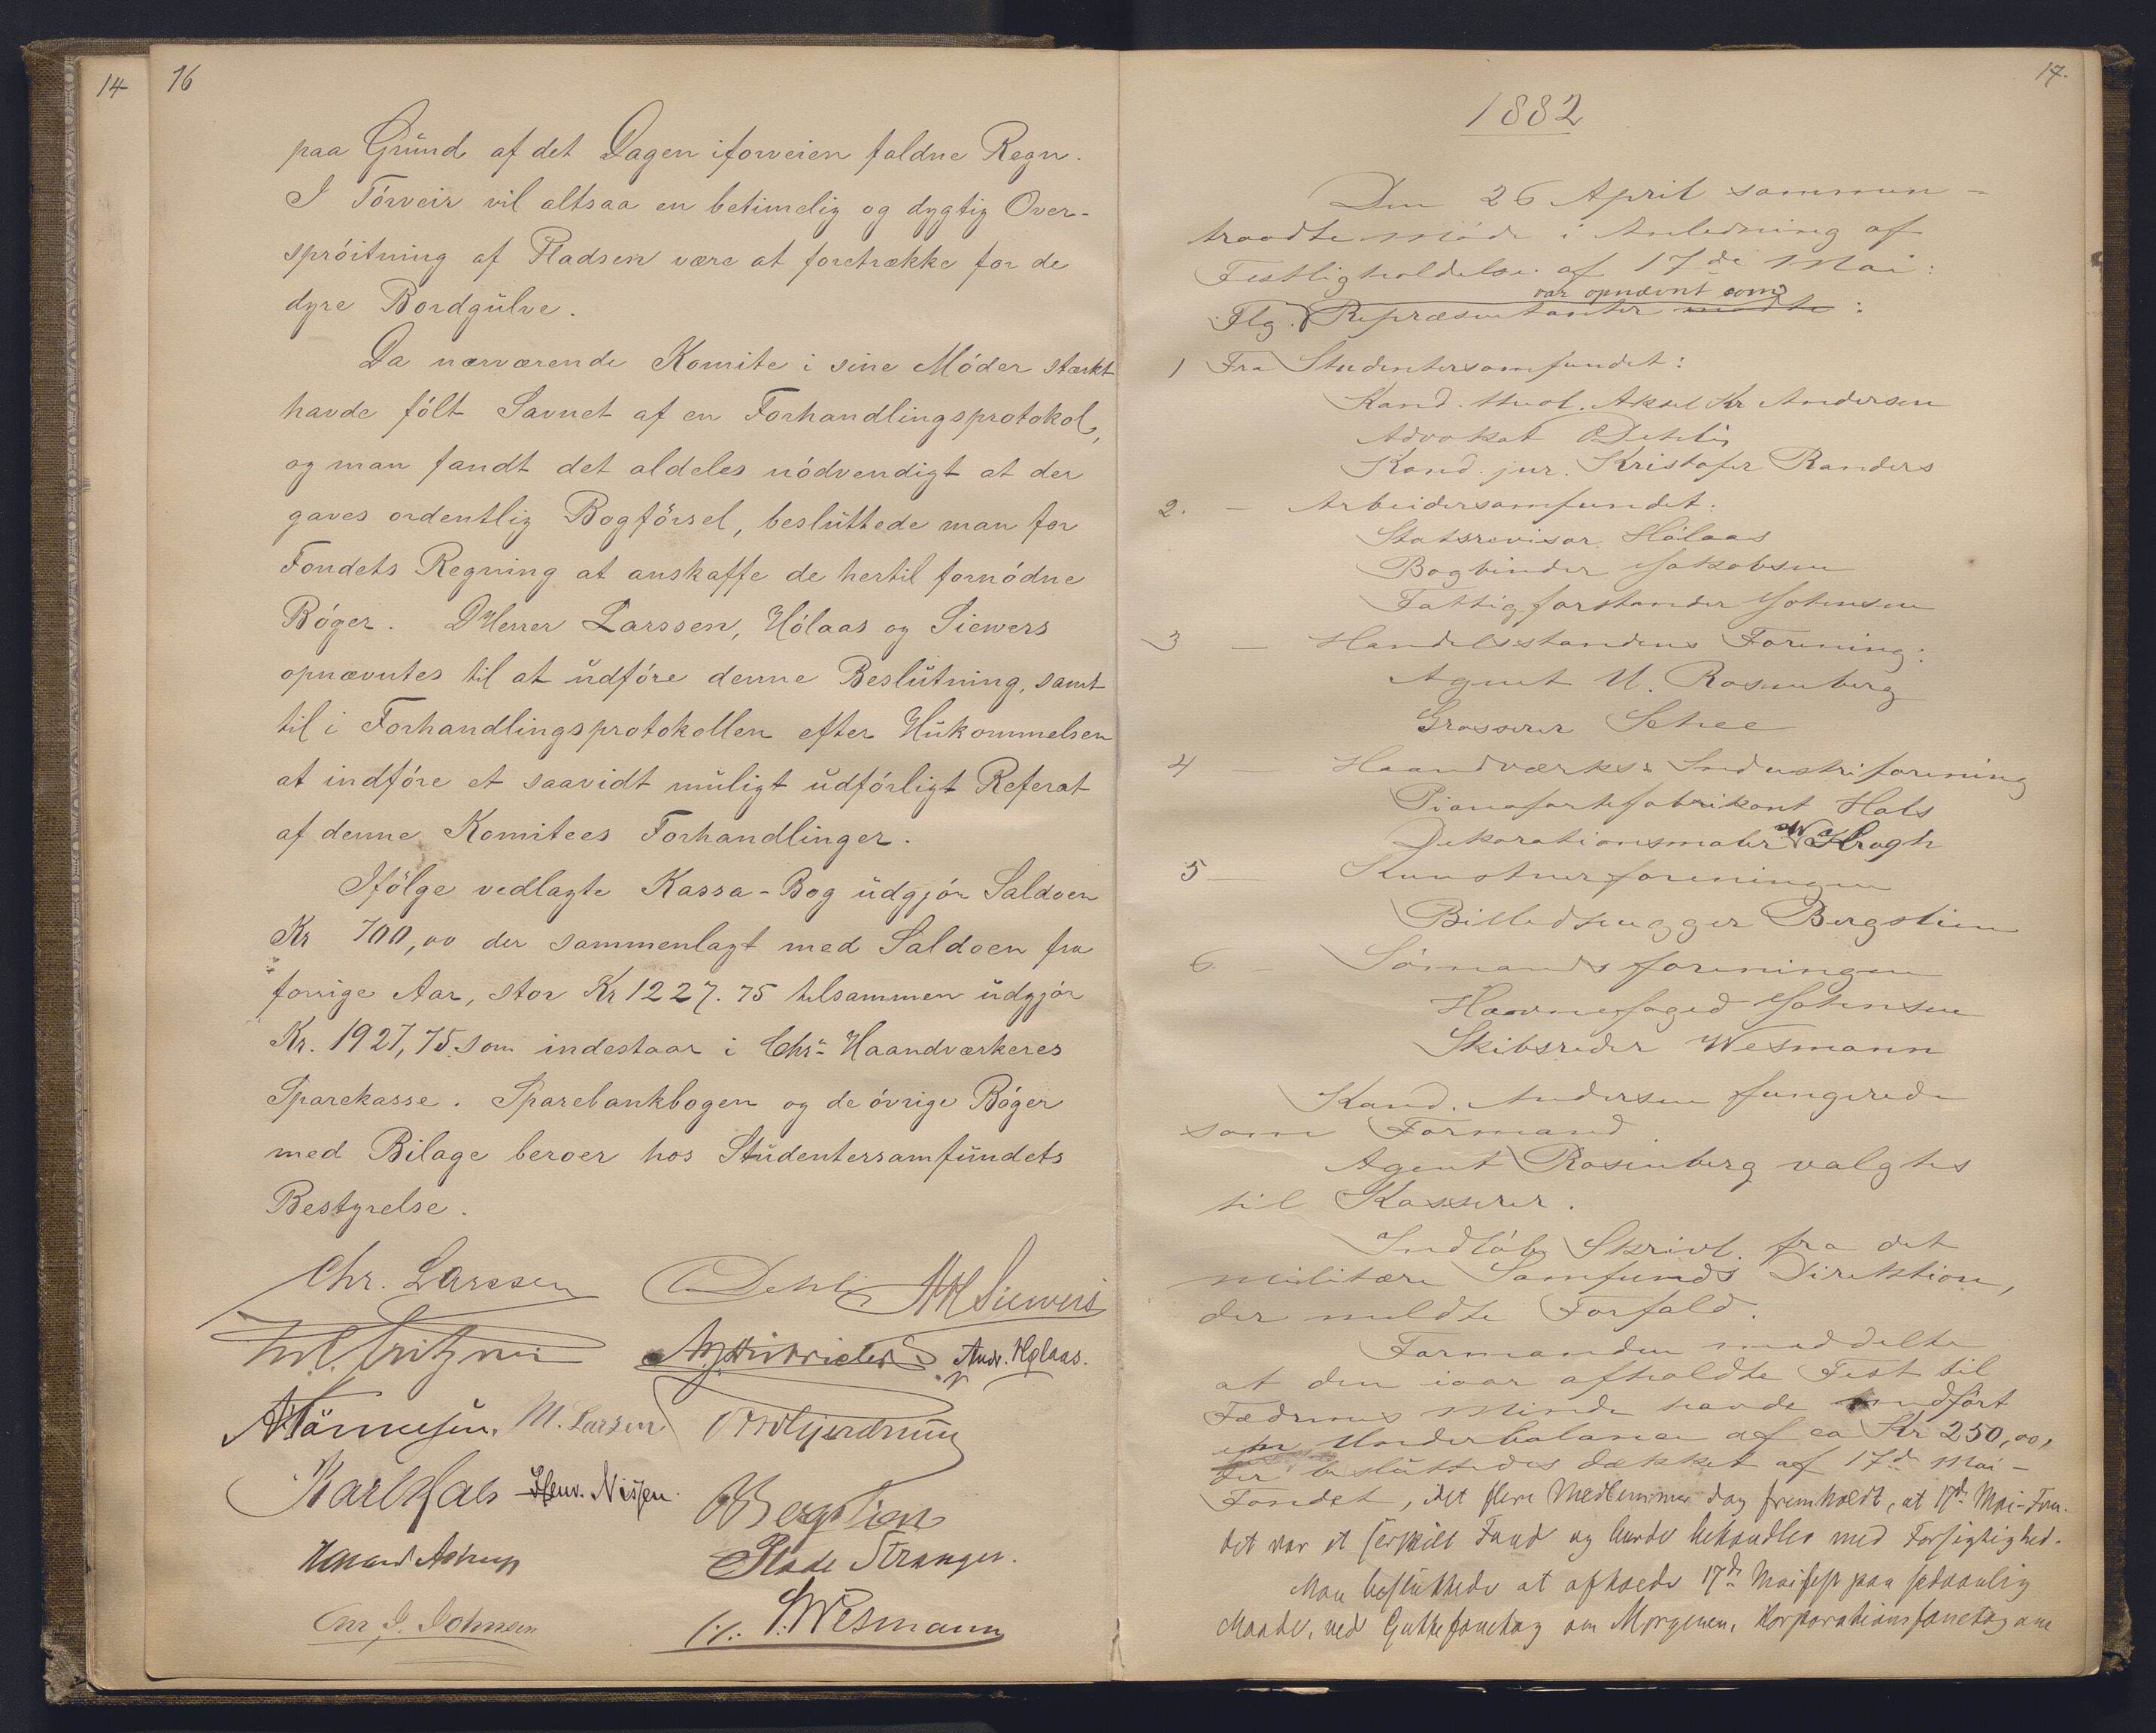 14
16
paa Grund af det Dagen iforveien faldne Regn.
I Törveir vil altsaa en betimelig og dygtig Over-
spröitning af Pladsen være at foretrække for de
dyre Bordgulve.
Da nærværende Komite i sine Möder stærkt
havde fölt Savnet af en Forhandlingsprotokol,
og man fandt det aldeles nödvendigt at der
gaves ordentlig Bogförsel, besluttede man for
Fondets Regning at anskaffe de hertil fornödne
Böger. DHerrer Larssen, Hólaas og Siewers
opnævntes til at udföre denne Beslutning, samt
til i Forhandlingsprotokollen efter Hukommelsen
at indföre et saavidt muligt udförligt Referat
af denne Komitees Forhandlinger.
Ifölge vedlagte Kassa-Bog udgjör Saldoen
Kr 700,00 der sammenlagt med Saldoen fra
forrige Aar, stor Kr 1227.75 tilsammen udgjör
Kr. 1927,75 som indestaar i Chra Haandværkeres
Sparekasse. Sparebankbogen og de övrige Böger
med Bilage beroer hos Studentersamfundets
Bestyrelse.
Chr. Larssen O Dehli AH Siewers
Andr. Hølaas.
M. Larsen
Karl Hals Henr. Nissen.
Bergslien
Halvard Astrup
Plade Stranger.
Chr J. Johnsen
S. Wesmann
17.
1882
Den 26 April sammen-
traadte Möde i Anledning af
Festligholdelse af 17de Mai:
var opnævnt som
Flg. Repræsentanter mödte:
1 Fra Studentersamfundet:
Kand. theol. Aksel Kr Andersen
Advokat O Dehli
Kand. jur. Kristofer Randers
2. — Arbeidersamfundet:
Statsrevisor Hólaas
Bogbinder Jakobsen
Fattigforstander Johnsen
3 — Handelsstandens Forening:
Agent U. Rosenberg
Grosserer Schee
4 — Haandværks & Industriforening
Pianofortefabrikant Hals
Dekorationsmaler W Krogh
5 — Kunstnerforeningen
Billedhugger Bergslien
6. — Sömandsforeningen
Havnefoged Johnsen
Skibsreder Wesmann
Kand. Andersen fungerede
som Formand
Agent Rosenberg valgtes
til Kasserer.
Indlöb Skrivl. fra det
militære Samfunds Direktion,
der meldte Forfald.
Formanden meddelte
at den iaar afholdte Fest til
Fædrenes Minde havde medfört
en Underbalance af ca Kr 250,00,
der besluttedes dækket af 17de Mai-
Fondet, idet flere Medlemmer dog fremholdt, at 17de Mai-Fon-
det var et særskilt Fond og burde behandles med Forsigtighed.
Man besluttede at afholde 17de Maifest paa sedvanlig
Maade, ved Guttefanetog om Morgenen, Korporationsfanetog om